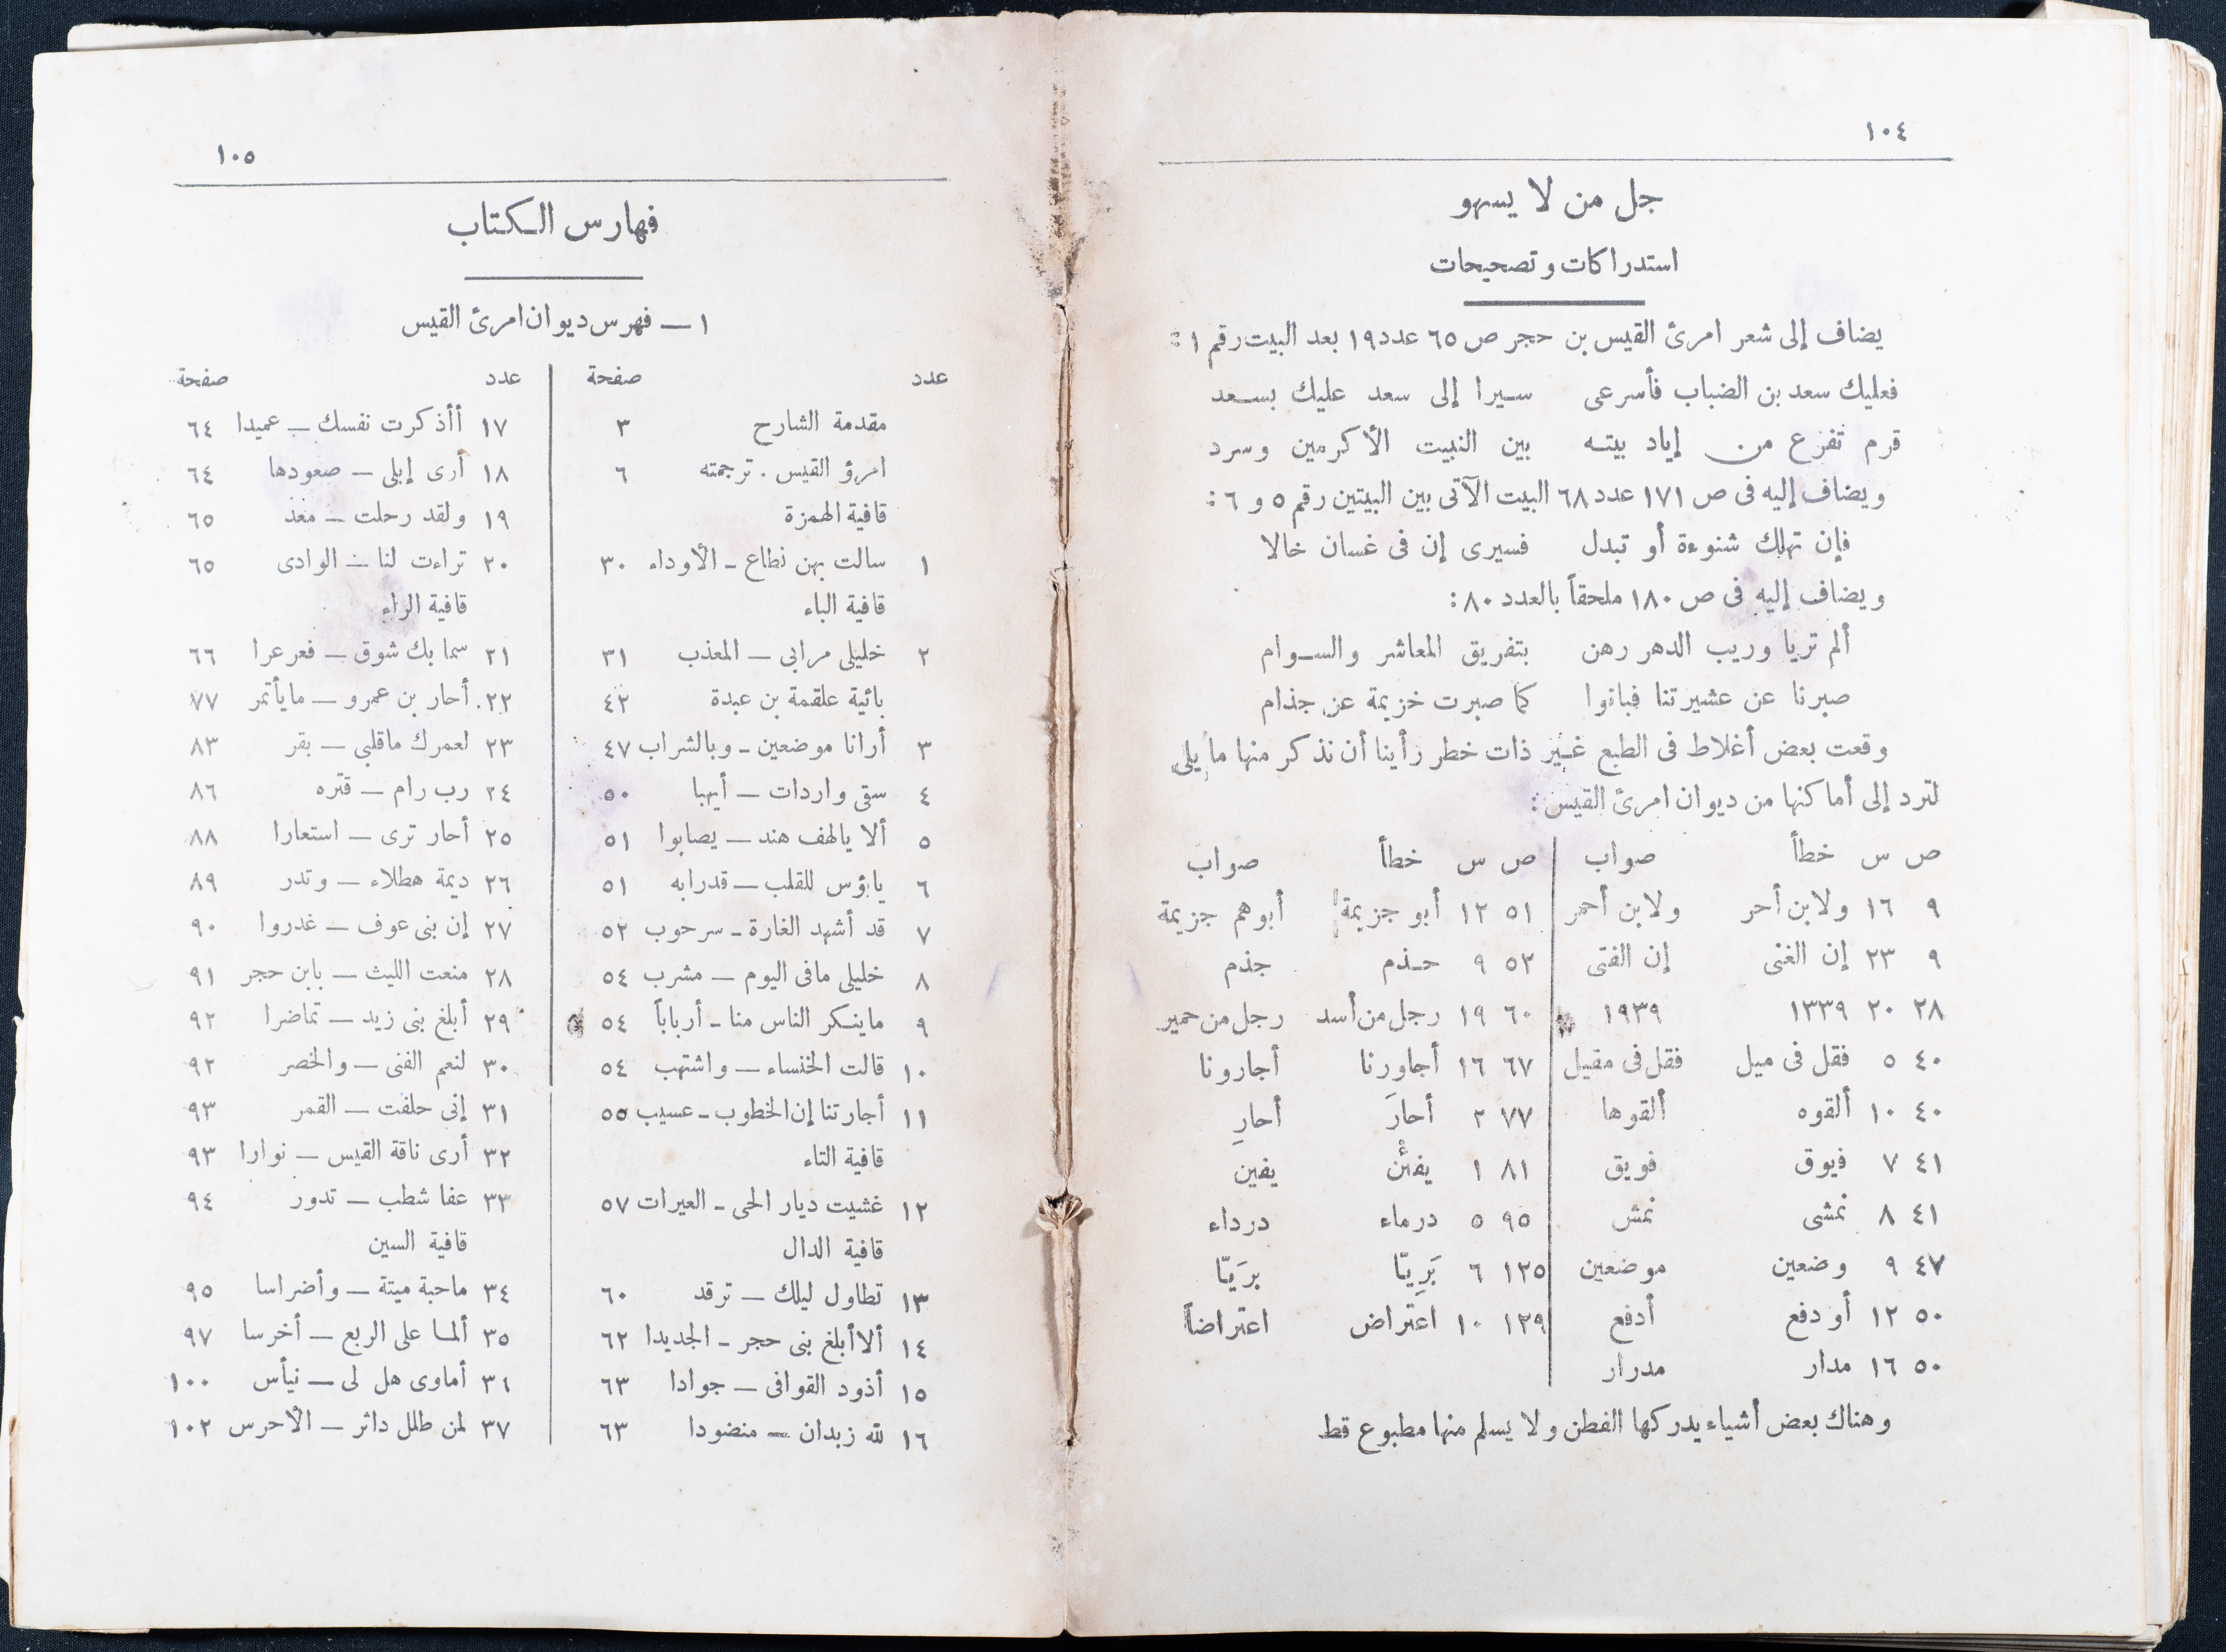 ١٠٤
جل من لا يسهو
استدراكات وتصحيحات
يضاف إلى شعر امرئ القيس بن حجر ص ٦٥ عدد ١٩ بعد البيت رقم ١ :
فعليك سعد بن الضباب فأسرعى سيرا إلى سعد عليك بسعد
قرم تفرع من إياد بيته بين النبيت الأكرمين وسرد
ويضاف إليه فى ص ١٧١ عدد ٦٨ البيت الآتى بين البيتين رقم ٥ و ٦ :
فإن تهلك شنوءة أو تبدل فسيرى إن فى غسان خالا
ويضاف إليه فى ص ١٨٠ ملحقاً بالعدد ٨٠ :
ألم تريا وريب الدهر رهن بتفريق المعاشر والسوام
صبرنا عن عشيرتنا فبانوا كما صبرت خزيمة عن جذام
وقعت بعض أغلاط فى الطبع غير ذات خطر رأينا أن نذكر منها ما يلى
لترد إلى أماكنها من ديوان امرئ القيس :
ص س خطأ صواب ص س خطأ صواب
٩ ١٦ ولابن أحر ولابن أحمر ٥١ ١٢ أبو جزيمة أبوهم جزيمة
٩ ٢٣ إن الغنى إن الفتى ٥٢ ٩ حذم جذم
٢٨ ٢٠ ١٣٣٩ ١٩٣٩ ٦٠ ١٩ رجل من أسد رجل من حمير
٤٠ ٥ فقل فى ميل فقل فى مقيل ٦٧ ١٦ أجاورنا أجارونا
٤٠ ١٠ ألقوه ألقوها ٧٧ ٢ أحارَ أحارِ
٤١ ٧ فيوق فويق ٨١ ١ يفئْن يفين
٤١ ٨ نمشى نمش ٩٥ ٥ درماء درداء
٤٧ ٩ وضعين موضعين ١٢٥ ٦ بَرِيّا برَيّا
٥٠ ١٢ أو دفع أدفع ١٢٩ ١٠ اعتراض اعتراضاً
٥٠ ١٦ مدار مدرار
وهناك بعض أشياء يدركها الفطن ولا يسلم منها مطبوع قط
١٠٥
فهارس الكتاب
١ — فهرس ديوان امرئ القيس
عدد صفحة
مقدمة الشارح ٣
امرؤ القيس . ترجمته ٦
قافية الهمزة
١ سالت بهن نطاع - الأوداء ٣٠
قافية الباء
٢ خليلى مرابى — المعذب ٣١
بائية علقمة بن عبدة ٤٢
٣ أرانا موضعين - وبالشراب ٤٧
٤ سقى واردات — أيهبا ٥٠
٥ ألا يالهف هند — يصابوا ٥١
٦ يابؤس للقلب — قدرابه ٥١
٧ قد أشهد الغارة - سرحوب ٥٢
٨ خليلى مافى اليوم — مشرب ٥٤
٩ ماينكر الناس منا - أرباباً ٥٤
١٠ قالت الخنساء — واشتهب ٥٤
١١ أجارتنا إن الخطوب - عسيب ٥٥
قافية التاء
١٢ غشيت ديار الحى - العيرات ٥٧
قافية الدال
١٣ تطاول ليلك — ترقد ٦٠
١٤ ألا أبلغ بنى حجر - الجديدا ٦٢
١٥ أذود القوافى — جوادا ٦٣
١٦ لله زبدان — منضودا ٦٣
عدد صفحة
١٧ أأذكرت نفسك — عميدا ٦٤
١٨ أرى إبلى — صعودها ٦٤
١٩ ولقد رحلت — معذ ٦٥
٢٠ تراءت لنا — الوادى ٦٥
قافية الراء
٢١ سما بك شوق — فعرعرا ٦٦
٢٢ أحار بن عمرو — مايأتمر ٧٧
٢٣ لعمرك ماقلبى — بقر ٨٣
٢٤ رب رام — قتره ٨٦
٢٥ أحار ترى — استعارا ٨٨
٢٦ ديمة هطلاء — وتدر ٨٩
٢٧ إن بنى عوف — غدروا ٩٠
٢٨ منعت الليث — بابن حجر ٩١
٢٩ أبلغ بنى زيد — تماضرا ٩٢
٣٠ لنعم الفتى — والخصر ٩٢
٣١ إنى حلفت — القمر ٩٣
٣٢ أرى ناقة القيس — نوارا ٩٣
٣٣ عفا شطب — تدور ٩٤
قافية السين
٣٤ ماحبة ميتة — وأضراسا ٩٥
٣٥ ألما على الربع — أخرسا ٩٧
٣٦ أماوى هل لى — نيأس ١٠٠
٣٧ لمن طلل داثر — الأحرس ١٠٢